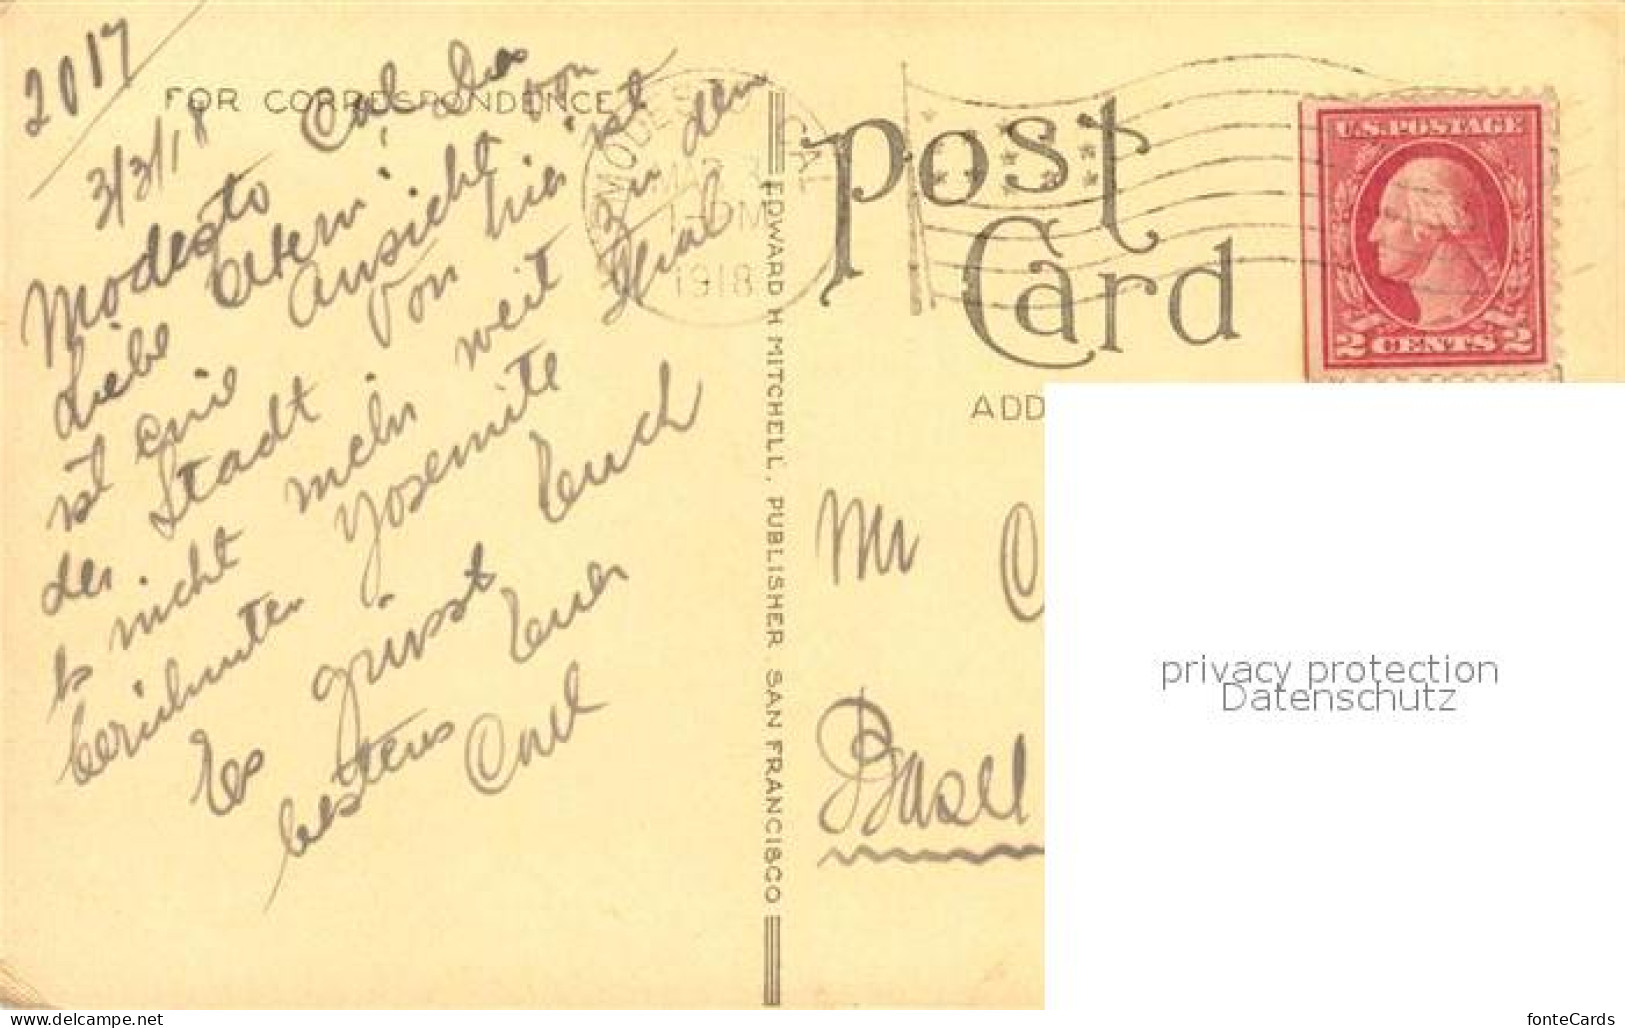 2017
FOR CORRESPONDENCE
3/31/18
Modesto Cal
Liebe Eltern! Dies
ist eine Ansicht von
der Stadt von hier ist
nicht mehr weit zu dem
berühmten Yosemite
Es grüsst Euch
bestens Euer
Carl
MODESTO CAL
MAR
1-PM
1918
EDWARD H MITCHELL, PUBLISHER SAN FRANCISCO
Post
Card
U.S. POSTAGE
2 CENTS 2
ADD
Mr C
Basel
privacy protection
Datenschutz
www.delcampe.net
fonteCards